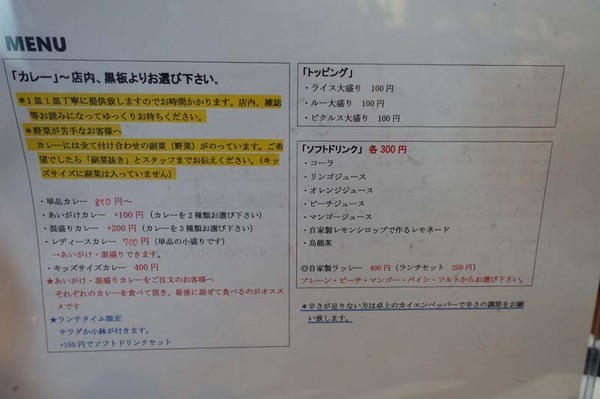 MENU
「カレー」～店内、黒板よりお選び下さい。
＊1皿1皿丁寧に提供致しますのでお時間かかります。店内、雑誌
等お読みになってゆっくりお待ちください。
＊野菜が苦手なお客様へ
カレーには全て付け合わせの副菜（野菜）がのっています。ご希
望でしたら「副菜抜き」とスタッフまでお伝えください。（キッ
ズサイズに副菜は入っていません）
・単品カレー 850円～
・あいがけカレー +100円（カレーを2種類お選び下さい）
・混盛りカレー +200円（カレーを3種類お選び下さい）
・レディースカレー 700円（単品の小盛りです）
→あいがけ・混盛りできます。
・キッズサイズカレー 400円
★あいがけ・混盛りカレーをご注文のお客様へ
それぞれのカレーを食べて頂き、最後に混ぜて食べるのがオスス
メです
★ランチタイム限定
サラダか小鉢が付きます。
+150円でソフトドリンクセット
「トッピング」
・ライス大盛り 100円
・ルー大盛り 100円
・ピクルス大盛り 100円
「ソフトドリンク」各300円
・コーラ
・リンゴジュース
・オレンジジュース
・ピーチジュース
・マンゴージュース
・自家製レモンシロップで作るレモネード
・烏龍茶
◎自家製ラッシー 400円（ランチセット 250円）
プレーン・ピーチ・マンゴー・パイン・ソルトからお選び下さい。
＊辛さが足りない方は卓上のカイエンペッパーで辛さの調節をお願
い致します。